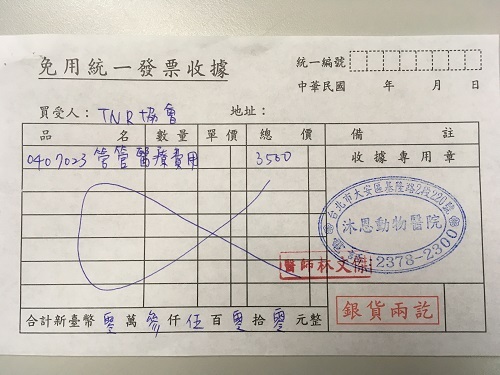 免用統一發票收據
統一編號
中華民國 年 月 日
買受人：TNR協會 地址：
品名 數量 單價 總價 備註
0407023 管管醫療費用 3500 收據專用章
台北市大安區基隆路2段220號
沐恩動物醫院
電話：2378-2300
醫師林文
銀貨兩訖
合計新臺幣零萬參仟伍百零拾零元整